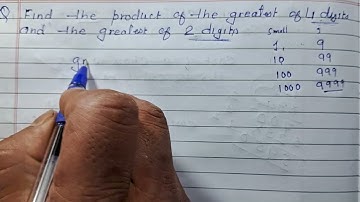 Q Find the product of the greatest of 4 digits
and the greatest of 2 digits
small
1, 9
10 99
100 999
1000 9999
gr